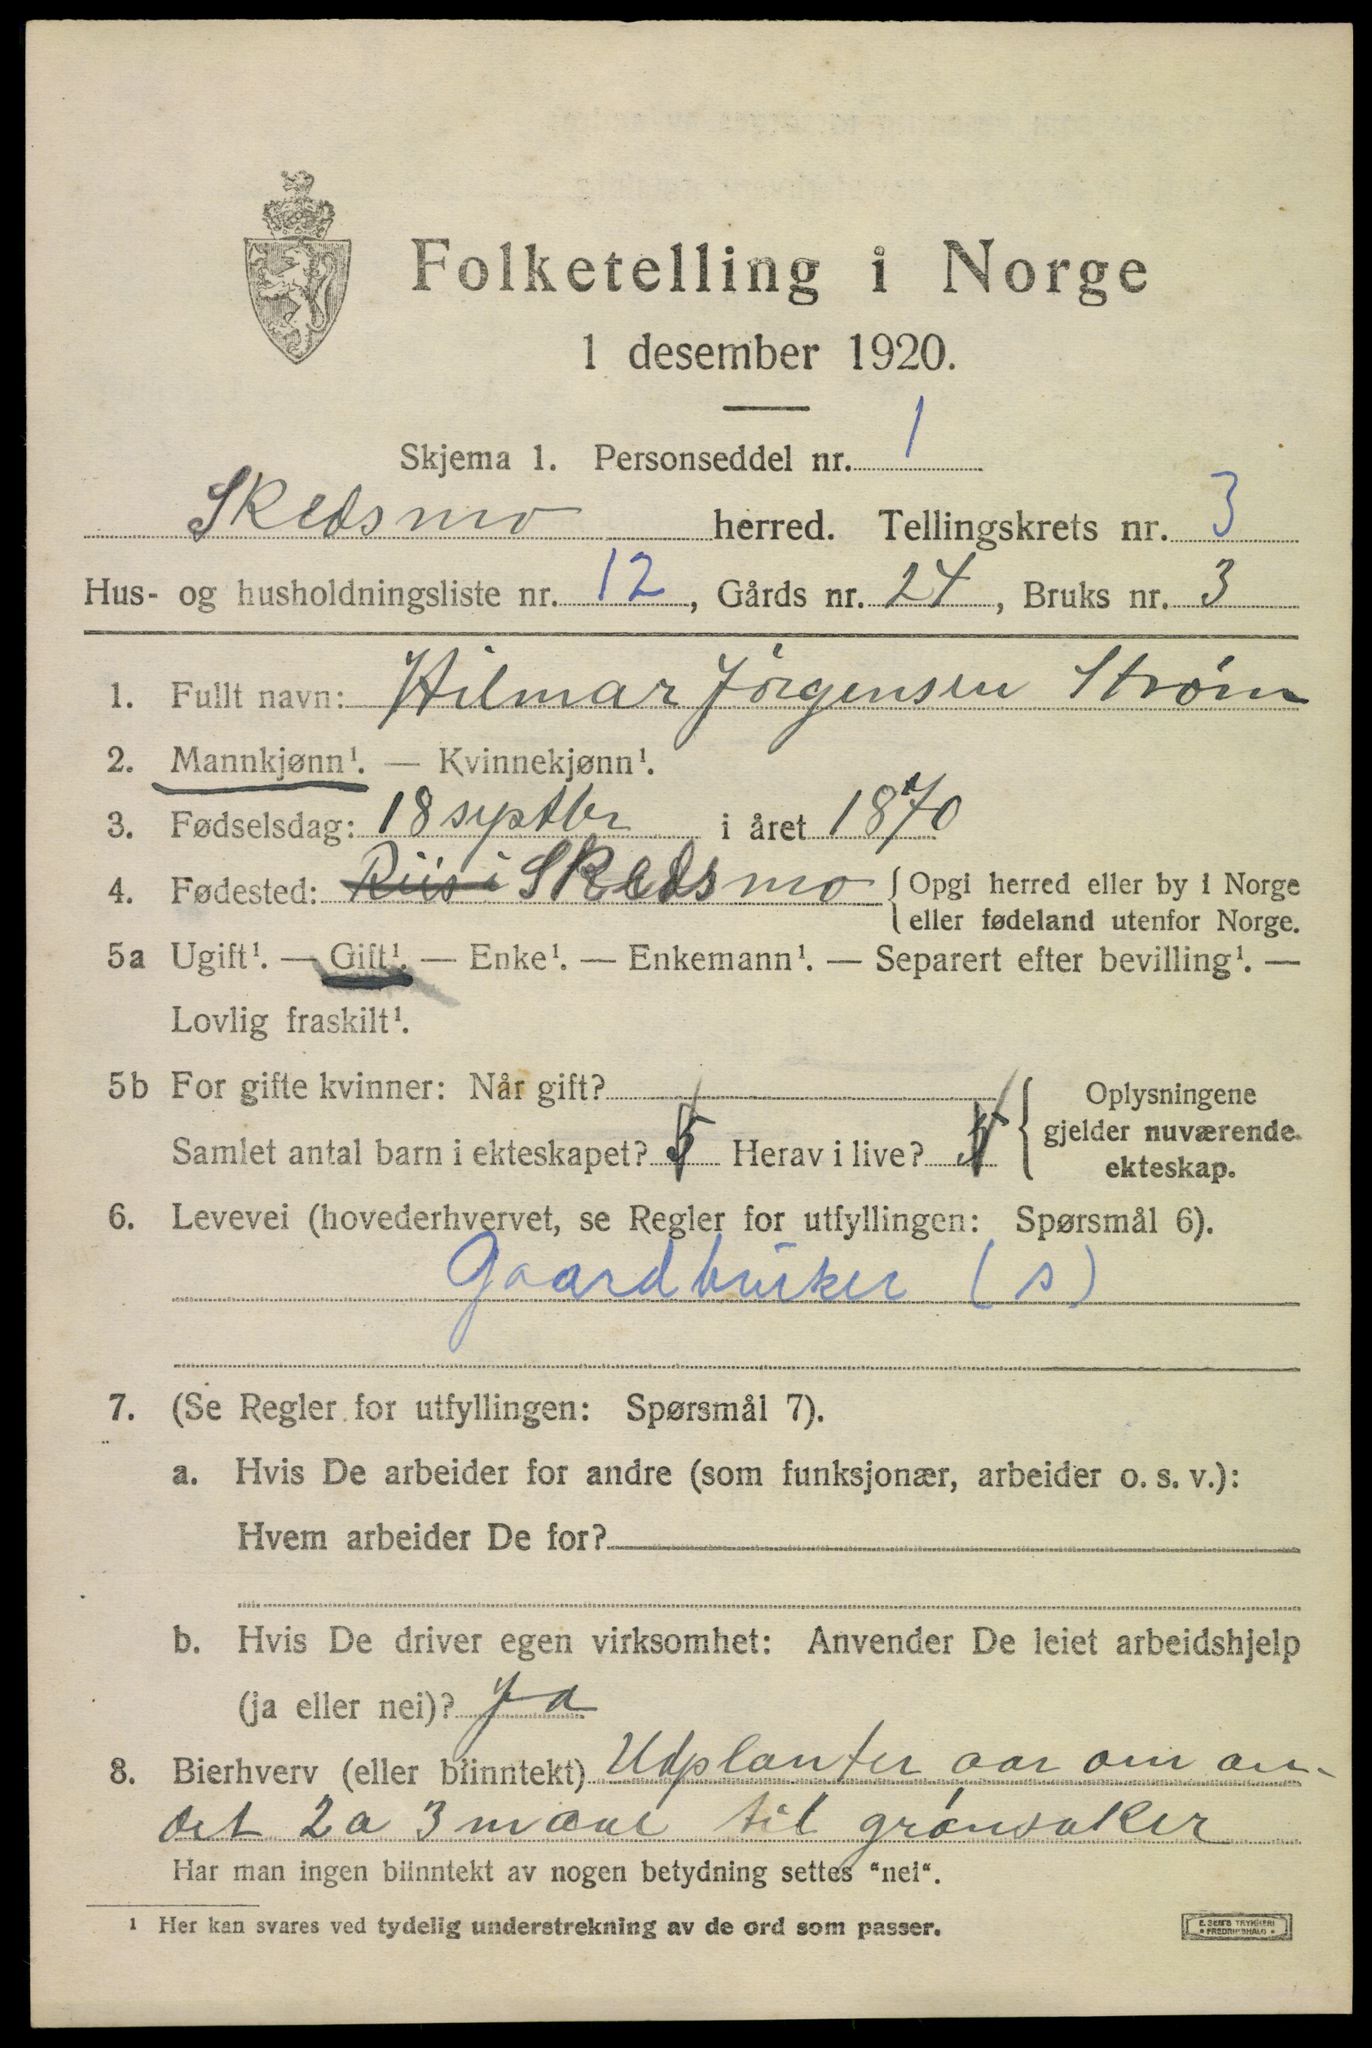 Folketelling i Norge
1 desember 1920.
Skjema 1. Personseddel nr. 1
Skedsmo herred. Tellingskrets nr. 3
Hus- og husholdningsliste nr. 12, Gårds nr. 24, Bruks nr. 3
1. Fullt navn: Hilmar Jörgensen Strøm
2. Mannkjønn¹. — Kvinnekjønn¹.
3. Fødselsdag: 18 septbr i året 1870
4. Fødested: Riis i Skedsmo { Opgi herred eller by i Norge
eller fødeland utenfor Norge.
5a Ugift¹. — Gift¹. — Enke¹. — Enkemann¹. — Separert efter bevilling¹. —
Lovlig fraskilt¹.
5b For gifte kvinner: Når gift?
Samlet antal barn i ekteskapet? 5 Herav i live? { Oplysningene
gjelder nuværende
ekteskap.
6. Levevei (hovederhvervet, se Regler for utfyllingen: Spørsmål 6).
Gaardbruker (s)
7. (Se Regler for utfyllingen: Spørsmål 7).
a. Hvis De arbeider for andre (som funksjonær, arbeider o. s. v.):
Hvem arbeider De for?
b. Hvis De driver egen virksomhet: Anvender De leiet arbeidshjelp
(ja eller nei)? Ja
8. Bierhverv (eller biinntekt) Udplanter aar om an-
det 2 a 3 maal til grönsaker
Har man ingen biinntekt av nogen betydning settes "nei".
¹ Her kan svares ved tydelig understrekning av de ord som passer.
E. SEM'S TRYKKERI
• FREDRIKSHALD •